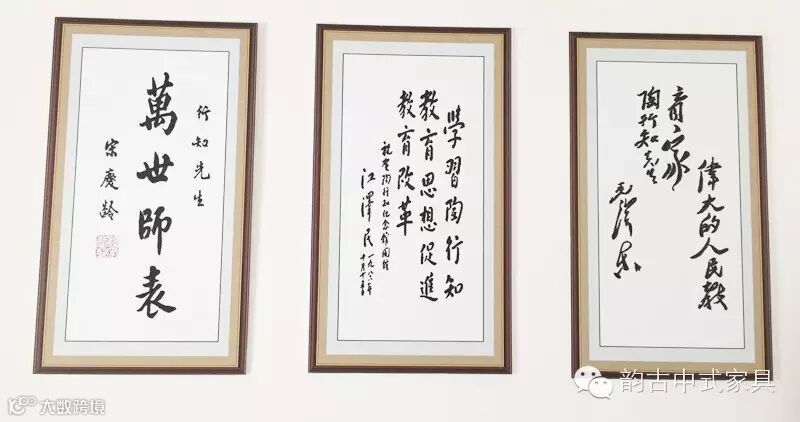 行知先生
萬世師表
宋慶齡
學習陶行知
教育思想促進
教育改革
祝賀陶行知纪念館開館
江澤民
一九八六年
偉大的人民教
育家
陶行知先生
毛澤東
韵古中式家具
大数跨境